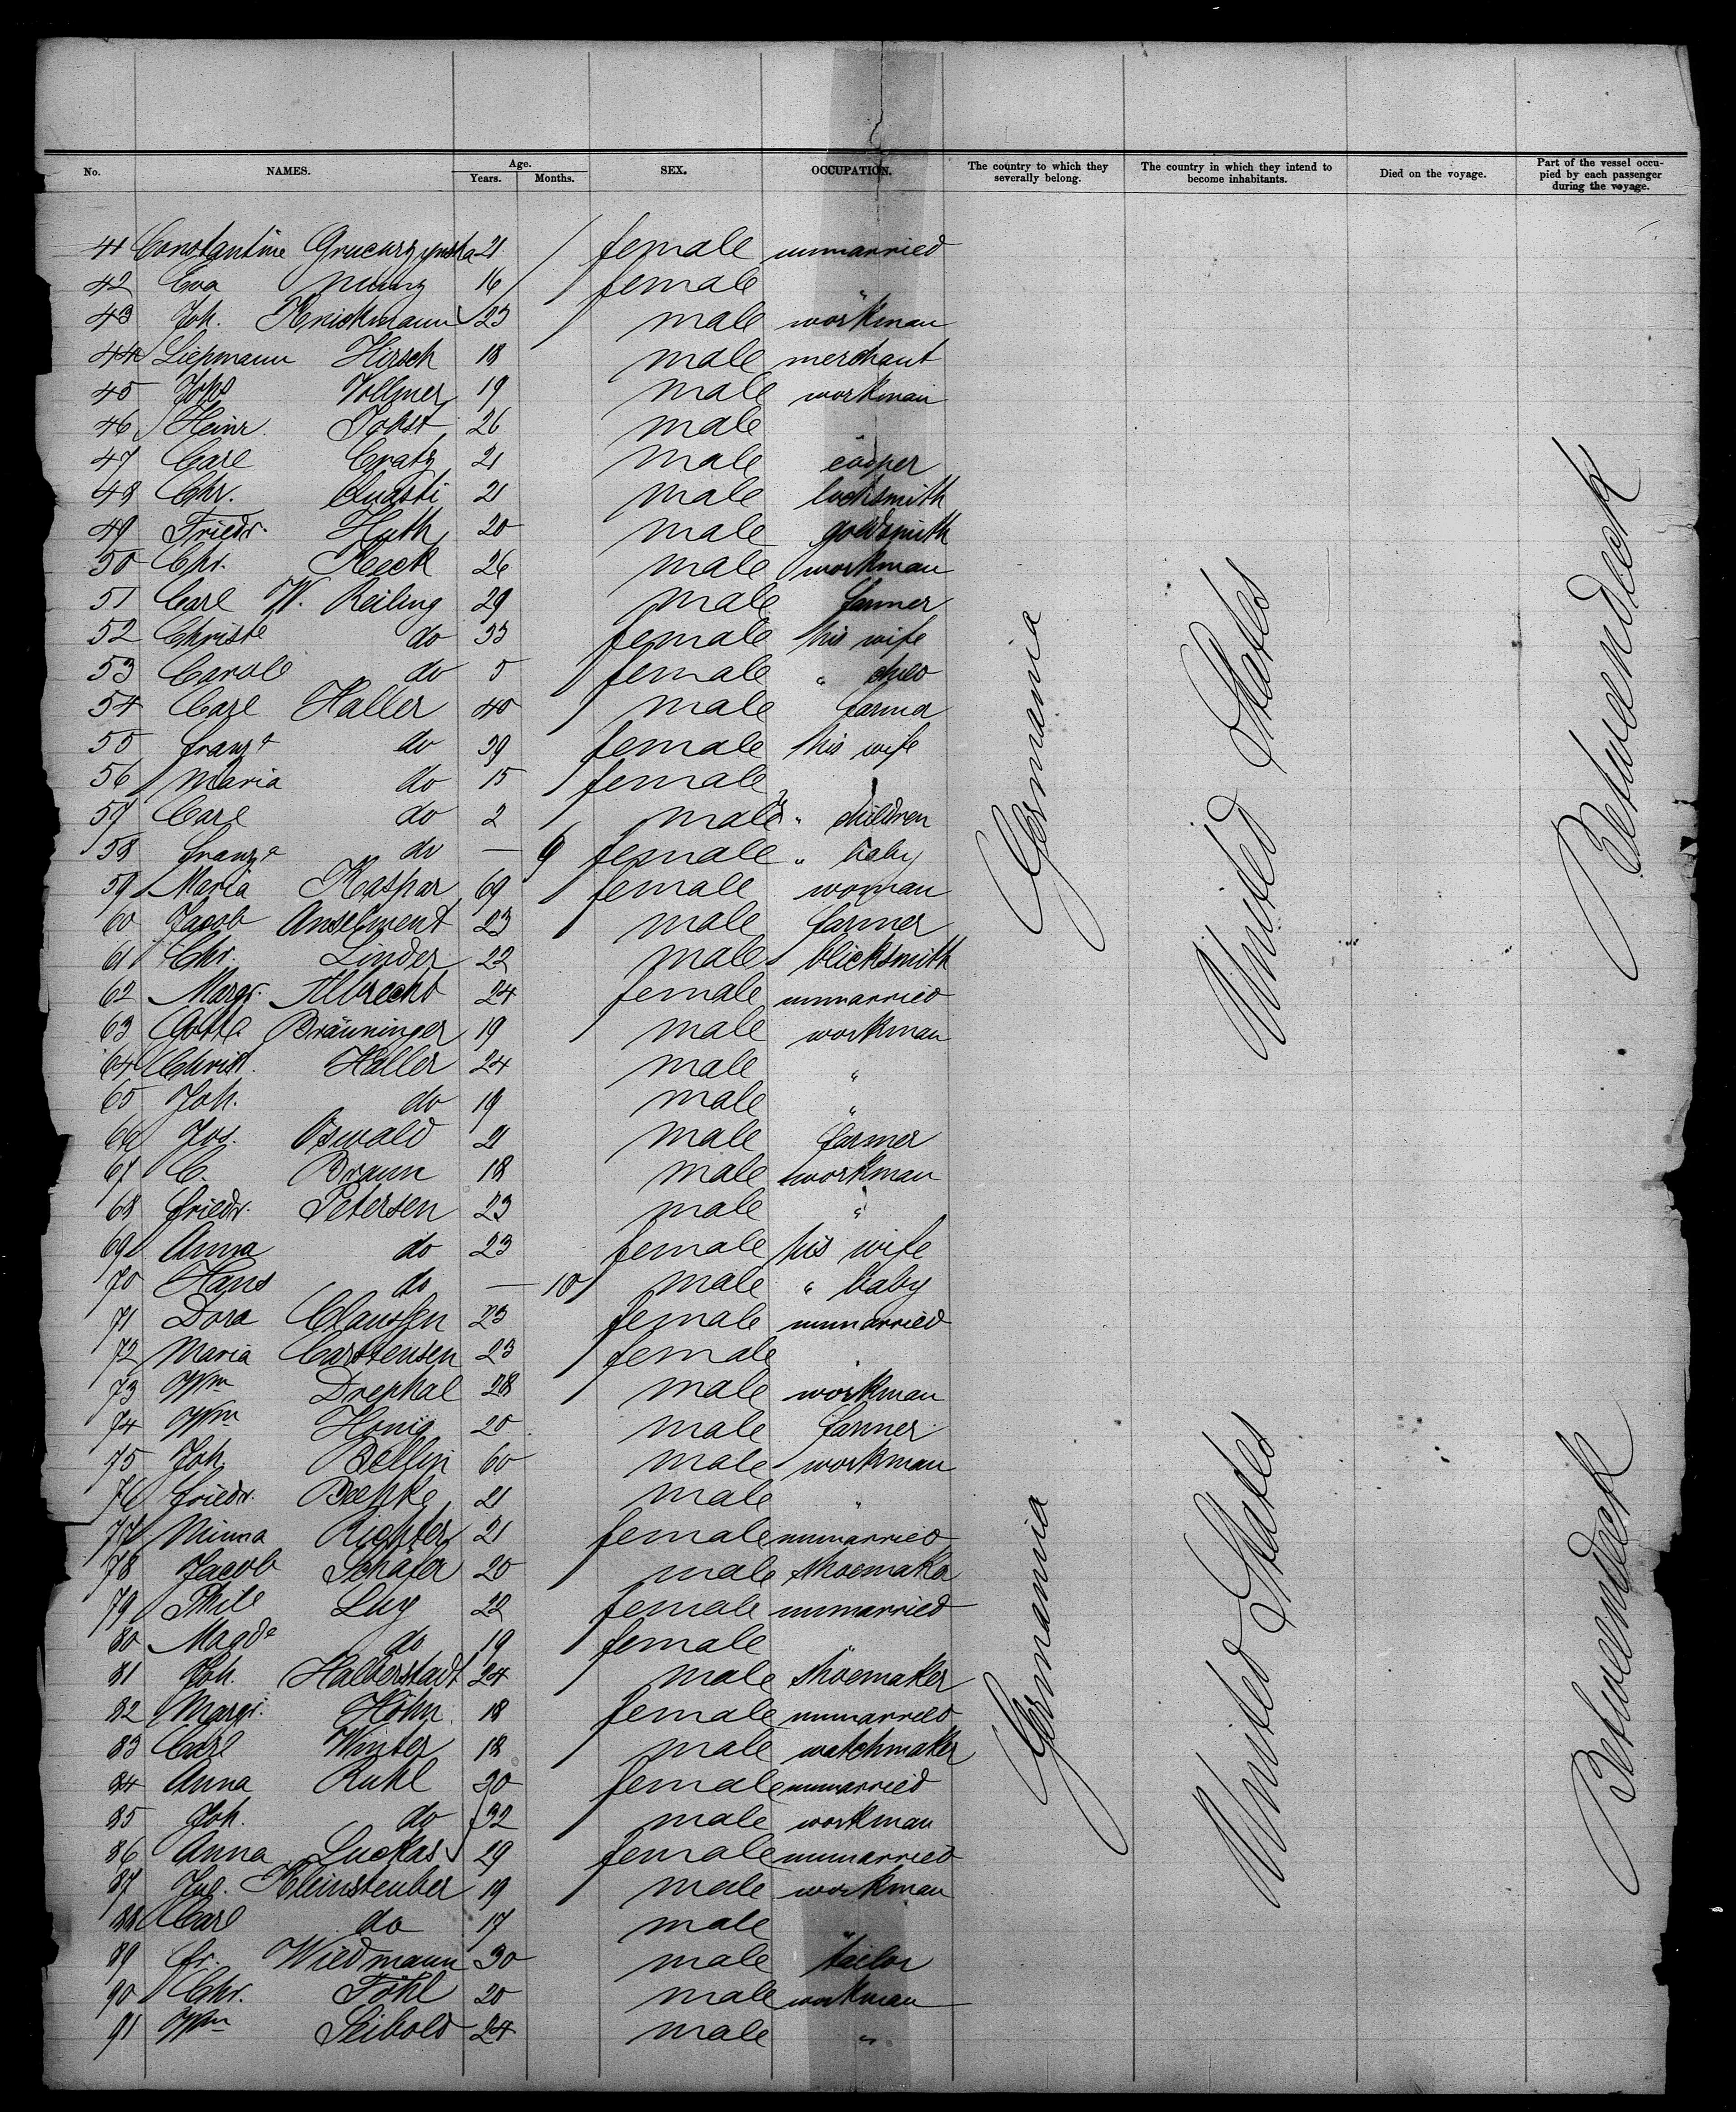 No. NAMES. Age. Years. Months. SEX. OCCUPATION. The country to which they severally belong. The country in which they intend to become inhabitants. Died on the voyage. Part of the vessel occupied by each passenger during the voyage.
41 Constantine 21 female unmarried
42 Eva 16 female "
43 Joh. Knickmann 23 male workman
44 Liepmann Hirsch 18 male merchant
45 Johs Vollmer 19 male workman
46 Heinr. Jobst 26 male "
47 Carl Cratz 21 male cooper
48 Chr. Quasti 21 male locksmith
49 Friedr. Huth 20 male goldsmith
50 Chr. Keck 26 male workman
51 Carl W. Reiling 29 male farmer
52 Christe do 33 female his wife
53 Carole do 5 female " child
54 Carl Haller 40 male farmer
55 Franza do 39 female his wife
56 Maria do 15 female
57 Carl do 2 male " children
58 Franza do — 9 female " baby
59 Maria Kaspar 69 female woman
60 Jacob Anselment 23 male farmer
61 Chr. Linder 22 male blicksmith
62 Margr. Albrecht 24 female unmarried
63 Bräuninger 19 male workman
64 Christ. Haller 24 male "
65 Joh. do 19 male "
66 Jos. Oswald 21 male farmer
67 C. Braun 18 male workman
68 Friedr. Petersen 23 male "
69 Anna do 23 female his wife
70 Hans do — 10 male " baby
71 Dora Claussen 23 female unmarried
72 Maria Carstensen 23 female "
73 Wm Drephal 28 male workman
74 Wm Honig 20 male farmer
75 Joh. Bellin 60 male workman
76 Friedr. Beepke 21 male "
77 Minna Richter 21 female unmarried
78 Jacob Schäfer 20 male shoemaker
79 Phile Luy 22 female unmarried
80 Magda do 19 female "
81 Joh. Halberstadt 24 male shoemaker
82 Margr. Höhn 18 female unmarried
83 Carl Winter 18 male watchmaker
84 Anna Ruhl 30 female unmarried
85 Joh. do 32 male workman
86 Anna Luckas 29 female unmarried
87 Jul. Kleinsteuber 19 male workman
88 Carl do 17 male "
89 Fr. Wiedmann 30 male tailor
90 Chr. Föhl 20 male workman
91 Wm Seibold 24 male "
Germania
United States
Betweendeck
Germannia
United States
Betweendeck